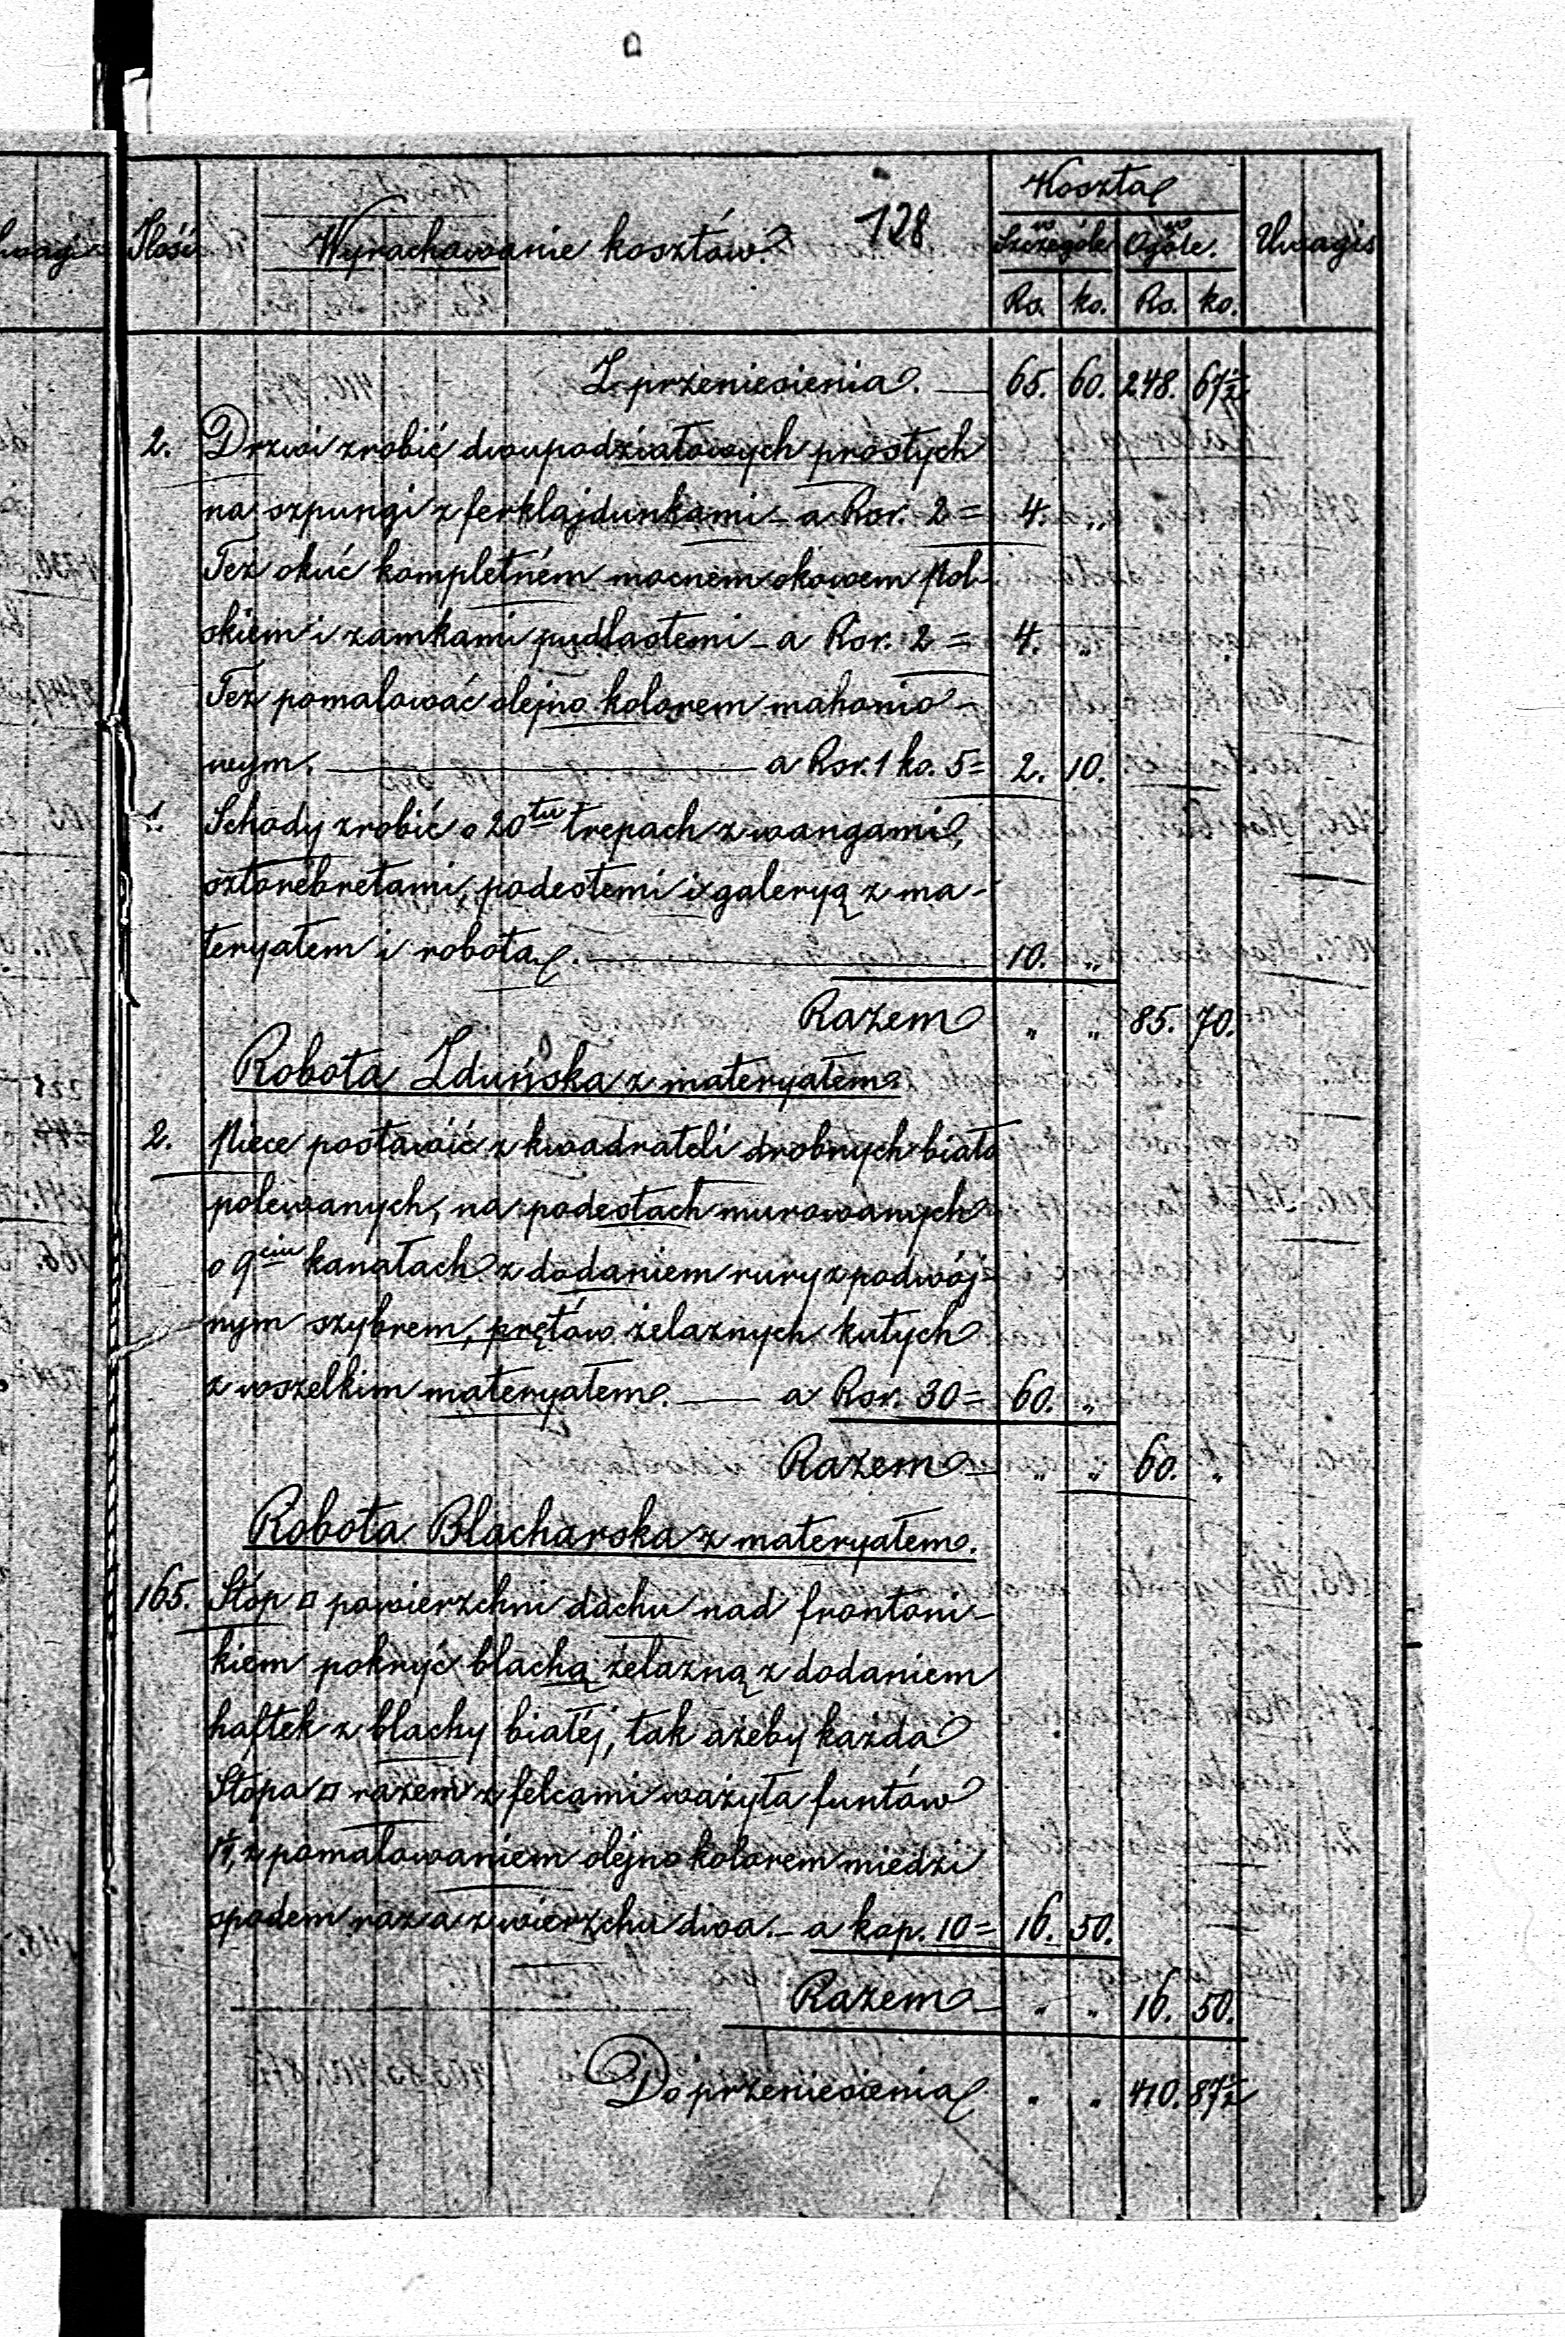 128
Koszta
Ilość Wyrachowanie kosztów. w Szczególe w Ogóle. Uwagi
Rs. ko. Rs. ko.
Z przeniesienia. — 65. 60. 248. 67½
2. Drzwi zrobić dwupodziałowych prostych
na szpungi z ferklajdunkami — a Rsr. 2 = 4. „
Też okuć kompletném mocnem okowem Pol-
skiem i zamkami pudlastemi — a Rsr. 2 = 4. „
Też pomalować olejno kolorem mahonio-
wym. — a Rsr. 1 ko. 5 = 2. 10.
1. Schody zrobić o 20tu trepach z wangami,
sztorcbretami, podestemi i galeryą z ma-
teryałem i robotą. — 10. „
Razem „ „ 85. 70.
Robota Zduńska z materyałem.
2. Piece postawić z kwadrateli drobnych biało
polewanych, na podestach murowanych
o 9ciu kanałach z dodaniem rury z podwój-
nym szybrem, prętów żelaznych kutych
z wszelkim materyałem. — a Rsr. 30 = 60. „
Razem — „ „ 60. „
Robota Blacharska z materyałem.
165. Stóp □ powierzchni dachu nad frontoni-
kiem pokryć blachą żelazną z dodaniem
haftek z blachy białéj, tak ażeby każda
Stopa □ razem z felcami ważyła funtów
z pomalowaniem olejno kolorem miedzi
spodem raz a z wierzchu dwa. — a kop. 10 = 16. 50.
Razem — „ „ 16. 50.
Do przeniesienia „ „ 410. 87½